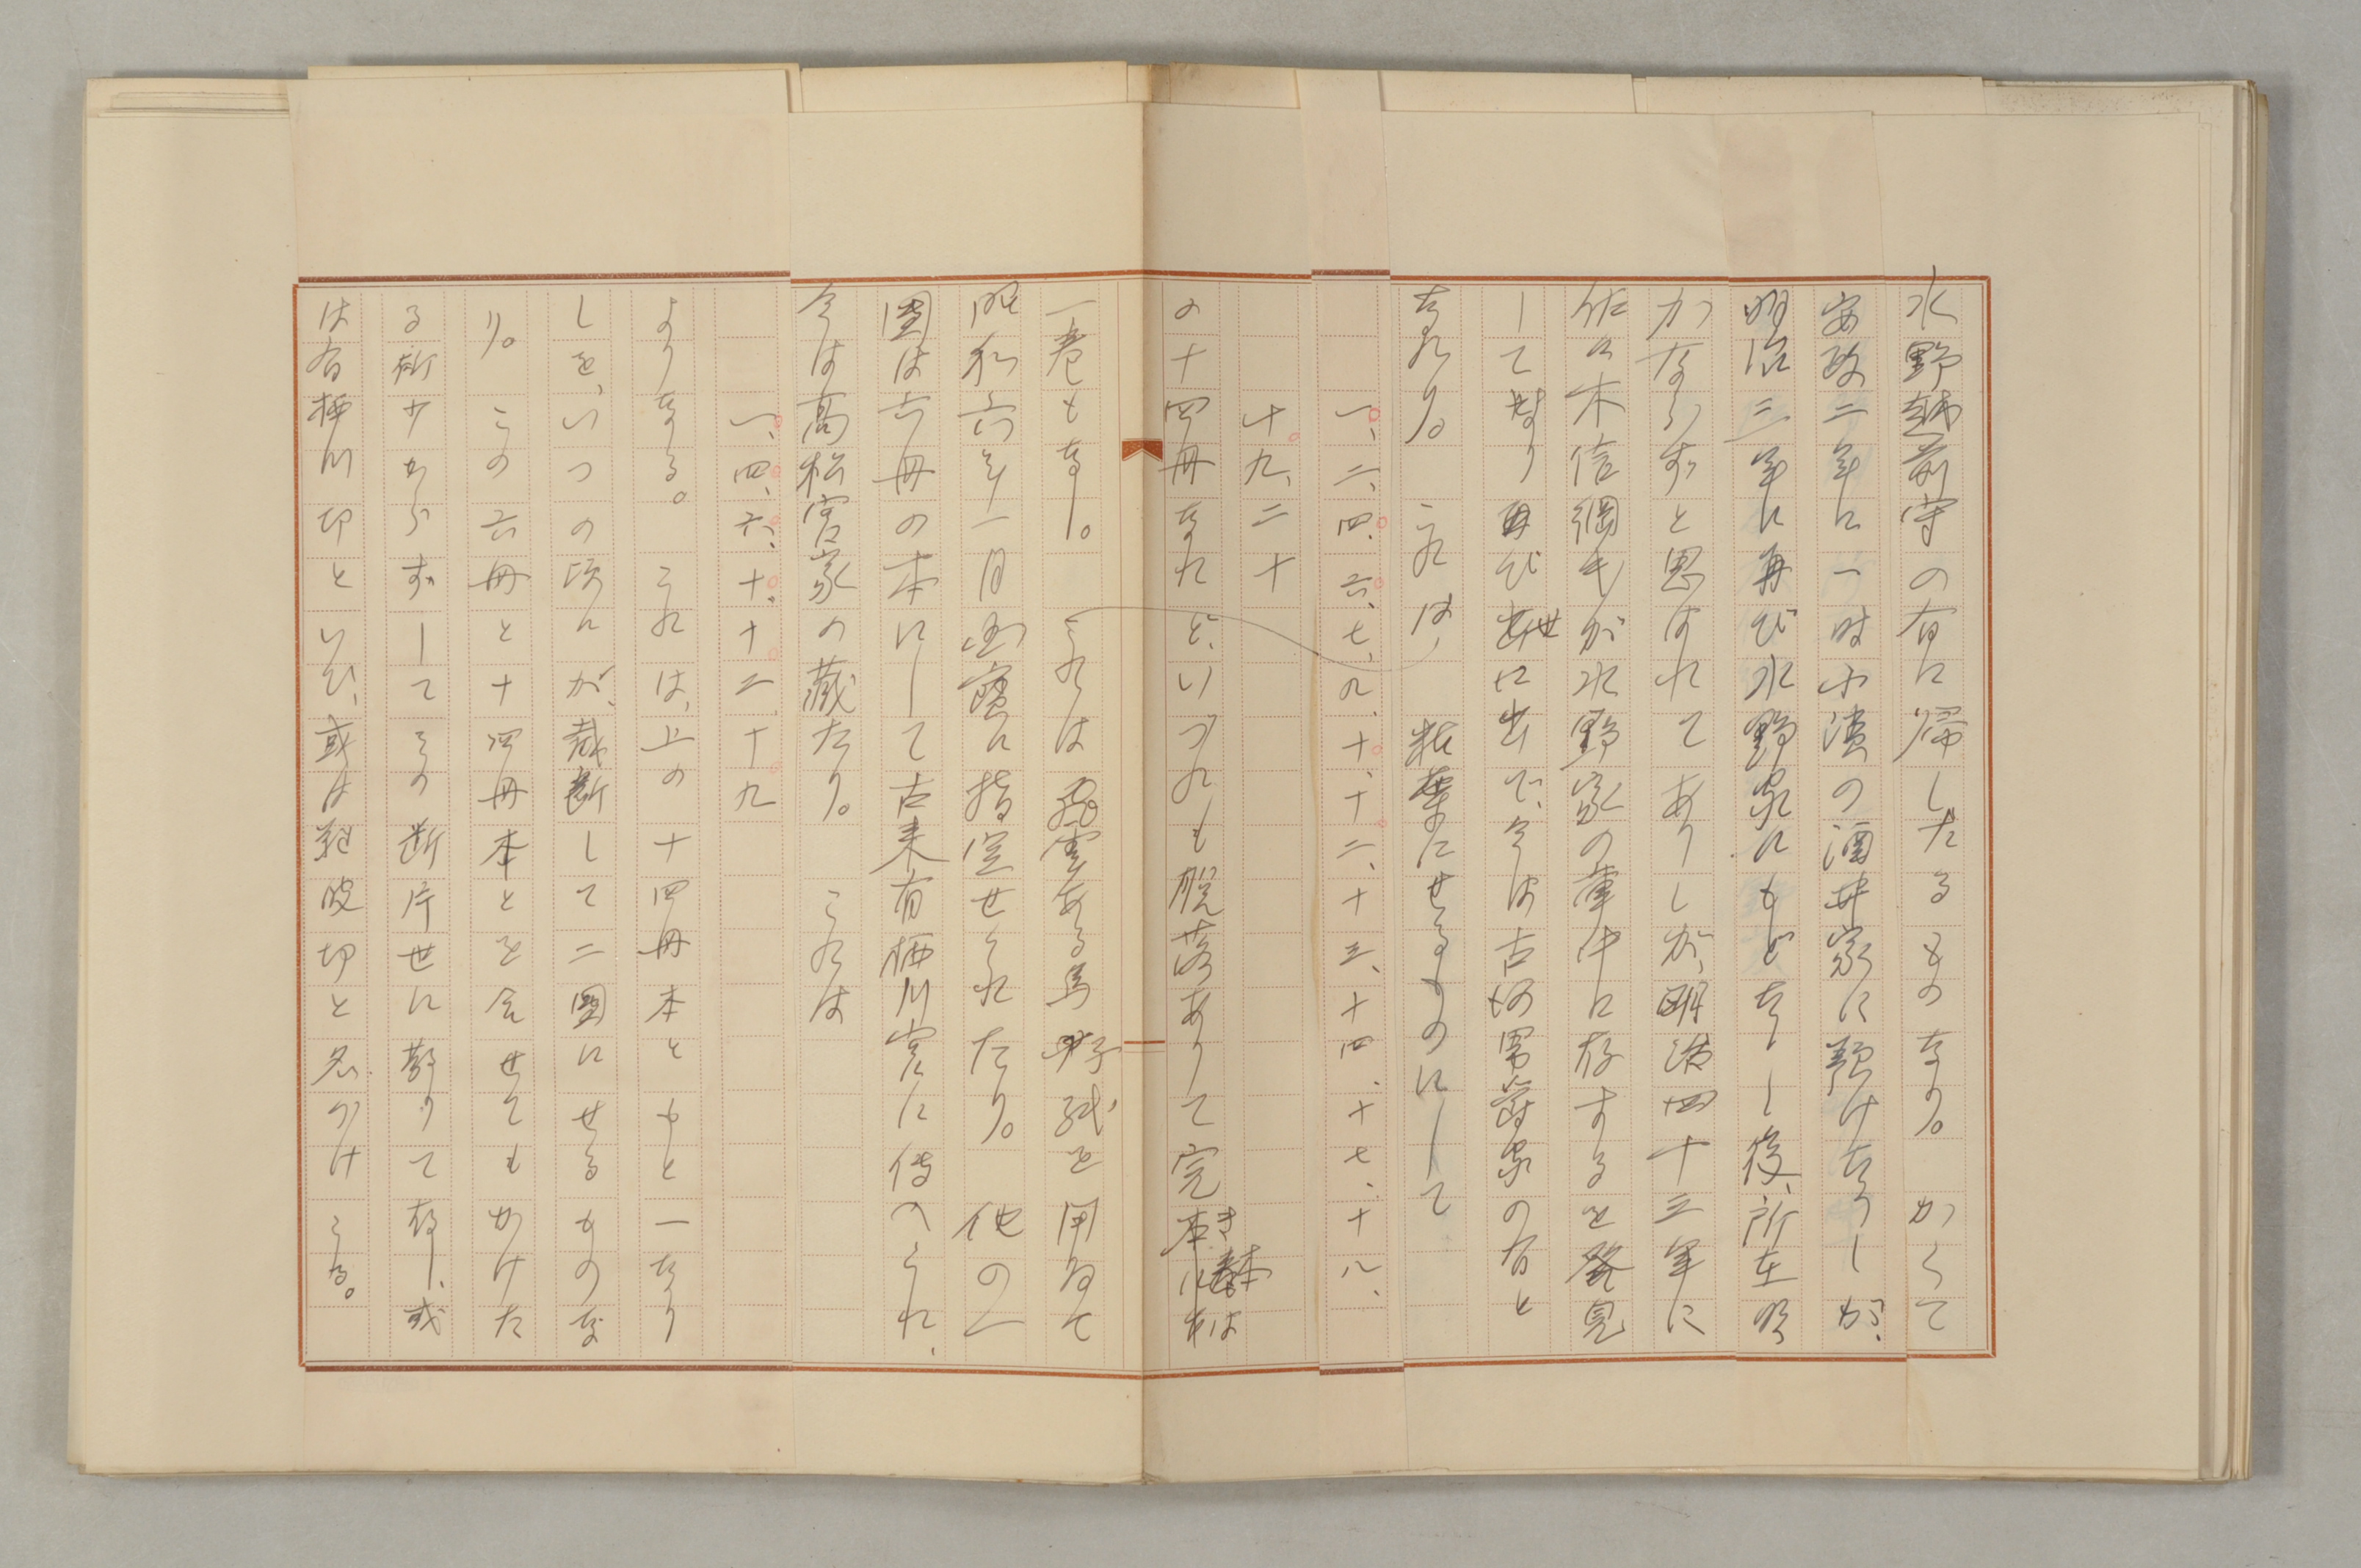 水野越前守の有に帰したるものなり。かくて
安政二年に一時小濱の酒井家に預けたりしが、
明治三年に再び水野家にもどりし後、所在明
かならずと思はれてありしが、明治四十三年に
佐々木信綱氏が水野家の庫中に存するを発見
して より再び世に出で、今は古河男爵家の有と
なれり。これは、粘葉にせるものにして
一、二、四、六、七、九、十、十二、十三、十四、十七、十八、
十九、二十
の十四冊なれど、いづれも脱落ありて完き本は
一巻もなし。これは飛雲ある鳥の子紙を用ゐて
昭和六年一月国宝に指定せられたり。他の一
團は六冊の本にして古来有栖川宮に傳へられ、
今は高松宮家の蔵たり。これは
一、四、六、十、十二、十九
よりなる。これは、上の十四冊本ともと一なり
しを、いつの頃にか、裁断して二團にせるものな
り。この六冊と十四冊本とを合せてもかけた
る所少からずしてその断片世に散りて存し、或
は有栖川切といひ、或は難波切と名づけらる。